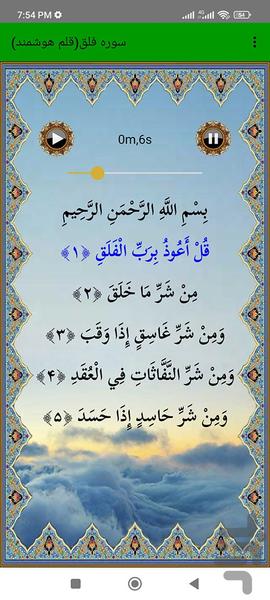 7:54 PM
سوره فلق(قلم هوشمند)
0m,6s
بِسْمِ اللَّهِ الرَّحْمَنِ الرَّحِيمِ
قُلْ أَعُوذُ بِرَبِّ الْفَلَقِ ﴿۱﴾
مِنْ شَرِّ مَا خَلَقَ ﴿۲﴾
وَمِنْ شَرِّ غَاسِقٍ إِذَا وَقَبَ ﴿۳﴾
وَمِنْ شَرِّ النَّفَّاثَاتِ فِي الْعُقَدِ ﴿۴﴾
وَمِنْ شَرِّ حَاسِدٍ إِذَا حَسَدَ ﴿۵﴾